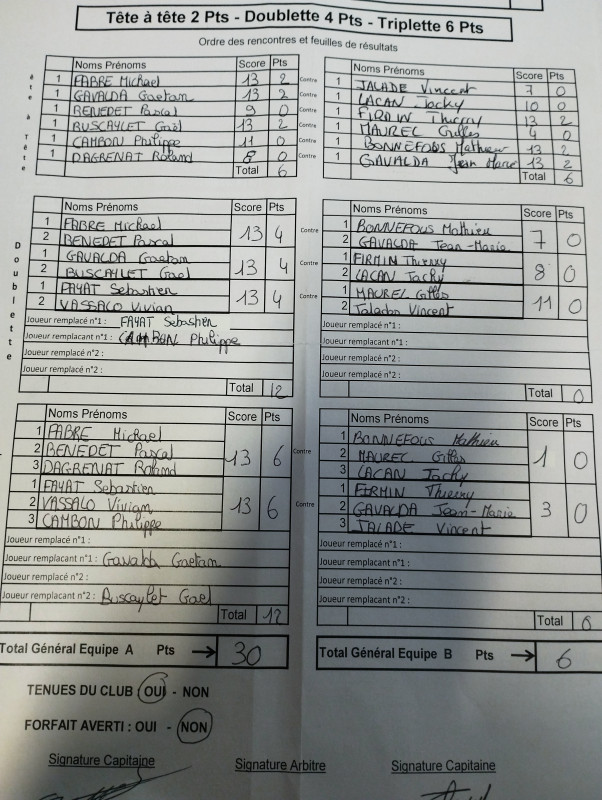 Tête à tête 2 Pts - Doublette 4 Pts - Triplette 6 Pts
Ordre des rencontres et feuilles de résultats
Noms Prénoms Score Pts
1 FABRE Michael 13 2 Contre
1 GAVALDA Gaetan 13 2 Contre
1 BENEDET Pascal 9 0 Contre
1 BUSCAYLET Gaël 13 2 Contre
1 CAMBON Philippe 11 0 Contre
1 DAGRENAT Roland 8 0 Contre
Total 6
Noms Prénoms Score Pts
1 JALADE Vincent 7 0
1 LACAN Jacky 10 0
1 FIRMIN Thierry 13 2
1 MAUREL Gilles 4 0
1 BONNEFOUS Mathieu 13 2
1 GAVALDA Jean Marie 13 2
Total 6
Doublette
Noms Prénoms Score Pts
1 FABRE Michael
2 BENEDET Pascal
13 4 Contre
1 GAVALDA Gaetan
2 BUSCAYLET Gael
13 4 Contre
1 FAYAT Sebastien
2 VASSALO Vivian
13 4 Contre
Joueur remplacé n°1 : FAYAT Sebastien
Joueur remplacant n°1 : CAMBON Philippe
Joueur remplacé n°2 :
Joueur remplacé n°2 :
Total 12
Noms Prénoms Score Pts
1 BONNEFOUS Mathieu
2 GAVALDA Jean-Marie
7 0
1 FIRMIN Thierry
2 LACAN Jacky
8 0
1 MAUREL Gilles
2 Jalade Vincent
11 0
Joueur remplacé n°1 :
Joueur remplacant n°1 :
Joueur remplacé n°2 :
Joueur remplacé n°2 :
Total 0
Noms Prénoms Score Pts
1 FABRE Michael
2 BENEDET Pascal
3 DAGRENAT Roland
13 6 Contre
1 FAYAT Sebastien
2 VASSALO Vivian
3 CAMBON Philippe
13 6 Contre
Joueur remplacé n°1 :
Joueur remplacant n°1 : Gavalda Gaetan
Joueur remplacé n°2 :
Joueur remplacant n°2 : Buscaylet Gael
Total 12
Noms Prénoms Score Pts
1 BONNEFOUS Mathieu
2 MAUREL Gilles
3 LACAN Jacky
1 0
1 FIRMIN Thierry
2 GAVALDA Jean-Marie
3 JALADE Vincent
3 0
Joueur remplacé n°1 :
Joueur remplacant n°1 :
Joueur remplacé n°2 :
Joueur remplacant n°2 :
Total 0
Total Général Equipe A Pts → 30
Total Général Equipe B Pts → 6
TENUES DU CLUB OUI - NON
FORFAIT AVERTI : OUI - NON
Signature Capitaine
Signature Arbitre
Signature Capitaine